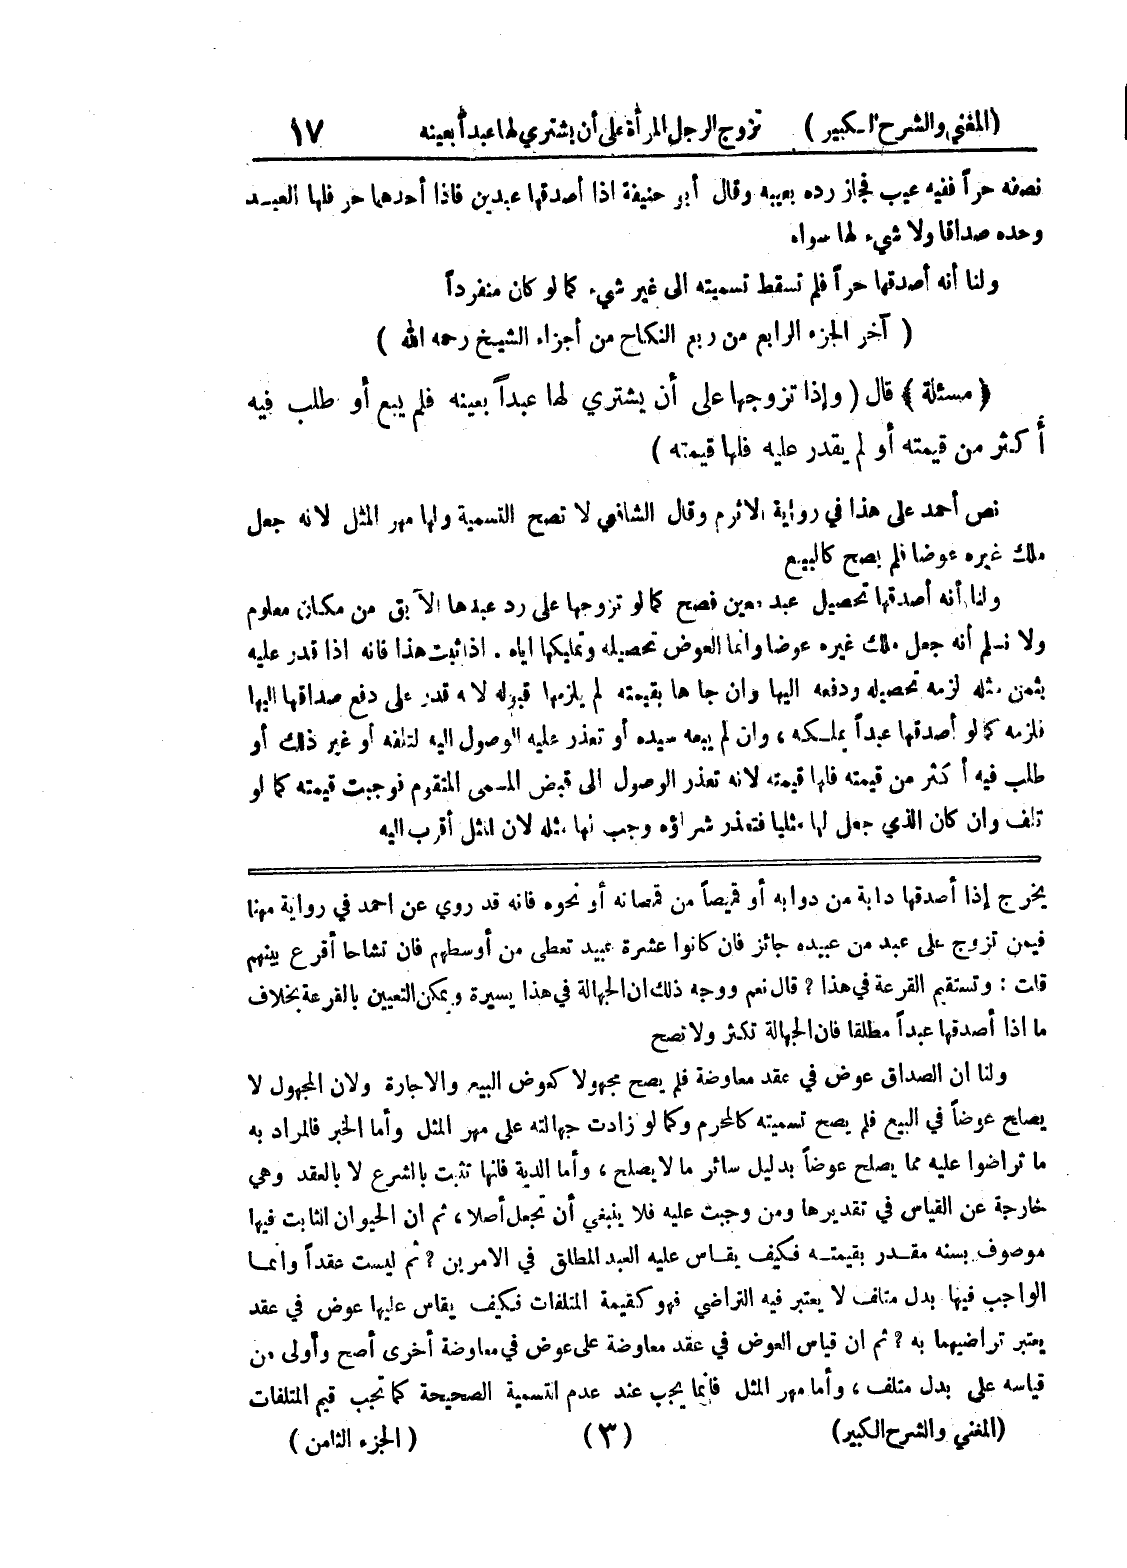 (المغني والشرح الكبير) تزوج الرجل المرأة على أن يشتري لها عبداً بعينه ١٧
نصفه حراً ففيه عيب فجاز رده بعيبه وقال أبو حنيفة اذا أصدقها عبدين فاذا أحدهما حر فلها العبد
وحده صداقا ولا شيء لها سواه
ولنا أنه أصدقها حراً فلم تسقط تسميته الى غير شيء كما لو كان منفرداً
( آخر الجزء الرابع من ربع النكاح من أجزاء الشيخ رحمه الله )
﴿ مسئلة ﴾ قال ( وإذا تزوجها على أن يشتري لها عبداً بعينه فلم يبع أو طلب فيه
أكثر من قيمته أو لم يقدر عليه فلها قيمته )
نص أحمد على هذا في رواية الاثرم وقال الشافعي لا تصح التسمية ولها مهر المثل لانه جعل
ملك غيره عوضا فلم يصح كالبيع
ولنا أنه أصدقها تحصيل عبد معين فصح كما لو تزوجها على رد عبدها الآبق من مكان معلوم
ولا نسلم أنه جعل ملك غيره عوضا وانما العوض تحصيله وتمليكها اياه . اذا ثبت هذا فانه اذا قدر عليه
بثمن مثله لزمه تحصيله ودفعه اليها وان جاءها بقيمته لم يلزمها قبوله لانه قدر على دفع صداقها اليها
فلزمه كما لو أصدقها عبداً يملكه ، وان لم يبعه سيده أو تعذر عليه الوصول اليه لتلفه أو غير ذلك أو
طلب فيه أكثر من قيمته فلها قيمته لانه تعذر الوصول الى قبض المسمى المتقوم فوجبت قيمته كما لو
تلف وان كان الذي جعل لها مثليا فتعذر شراؤه وجب لها مثله لان المثل أقرب اليه
يخرج إذا أصدقها دابة من دوابه أو قميصاً من قمصانه أو نحوه فانه قد روي عن احمد في رواية مهنا
فيمن تزوج على عبد من عبيده جائز فان كانوا عشرة عبيد تعطى من أوسطهم فان تشاحا أقرع بينهم
قلت : وتستقيم القرعة في هذا ؟ قال نعم ووجه ذلك ان الجهالة في هذا يسيرة ويمكن التعيين بالقرعة بخلاف
ما اذا أصدقها عبداً مطلقا فان الجهالة تكثر ولا تصح
ولنا ان الصداق عوض في عقد معاوضة فلم يصح مجهولا كعوض البيع والاجارة ولان المجهول لا
يصلح عوضاً في البيع فلم يصح تسميته كالمحرم وكما لو زادت جهالته على مهر المثل وأما الخبر فالمراد به
ما تراضوا عليه مما يصلح عوضاً بدليل سائر ما لا يصلح ، وأما الدية فانها تثبت بالشرع لا بالعقد وهي
خارجة عن القياس في تقديرها ومن وجبت عليه فلا ينبغي أن تجعل أصلا ، ثم ان الحيوان الثابت فيها
موصوف بسنه مقدر بقيمته فكيف يقاس عليه العبد المطلق في الامرين ؟ ثم ليست عقداً وانما
الواجب فيها بدل متلف لا يعتبر فيه التراضي فهو كقيمة المتلفات فكيف يقاس عليها عوض في عقد
يعتبر تراضيهما به ؟ ثم ان قياس العوض في عقد معاوضة على عوض في معاوضة أخرى أصح وأولى من
قياسه على بدل متلف ، وأما مهر المثل فانما يجب عند عدم التسمية الصحيحة كما تجب قيم المتلفات
(المغني والشرح الكبير) (٣) (الجزء الثامن)